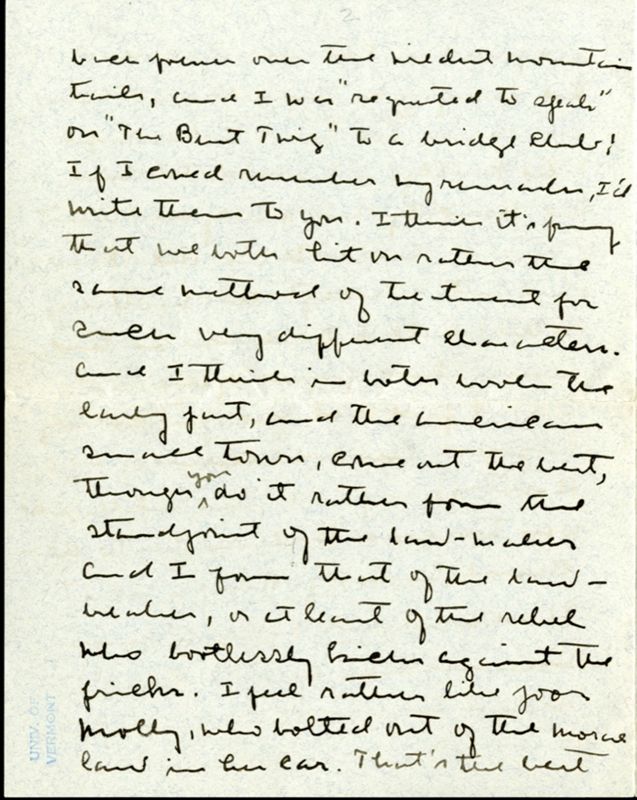 2
over the mountain
trails, and I was "requested to speak"
on "The Bent Twig" to a bridge club!
If I could remember my remarks, I'd
write them to you. I think it's funny
that we both hit on rather the
same method of treatment for
such very different characters.
and I think in both books the
early part, and the american
small town, come out the best,
though you do it rather from the
standpoint of the law-maker
and I from that of the law-
breaker, or at least of the rebel
who bootlessly kicks against the
pricks. I feel rather like poor
Molly, who bolted out of the
land in her car. That's the best
UNIV. OF
VERMONT